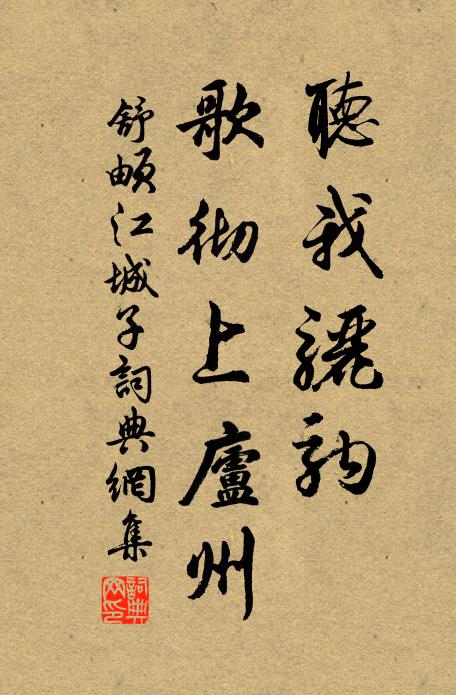 聽我驪駒
歌彻上廬州
舒頔江城子詞典網集
詞典网印